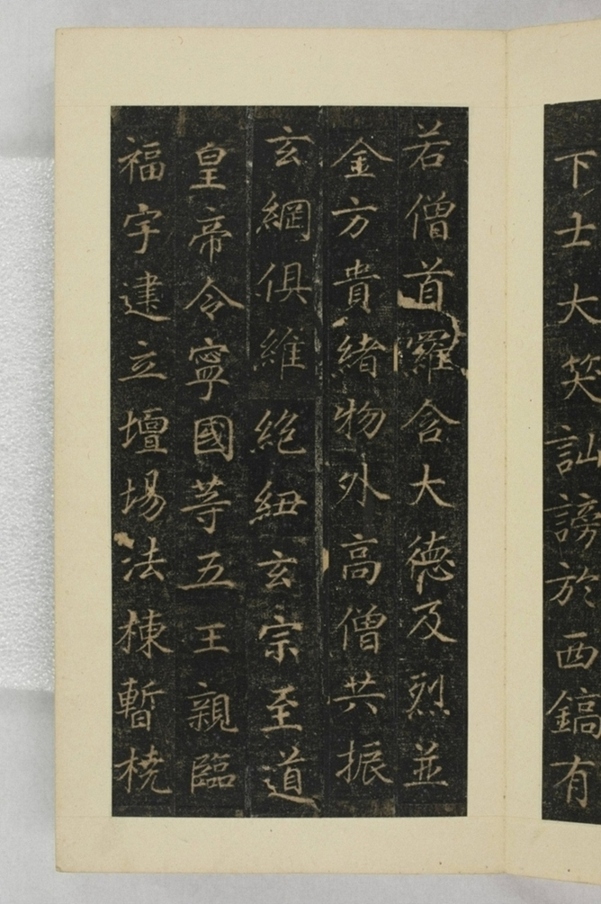 下士大笑訕謗於西鎬有
若僧首羅含大德及烈並
金方貴緒物外高僧共振
玄綱俱維絶紐玄宗至道
皇帝令寧國等五王親臨
福宇建立壇場法棟暫橈